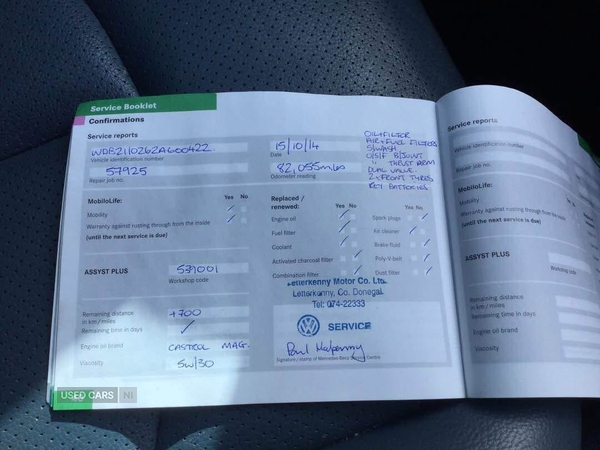 Service Booklet
Confirmations
Service reports
WDB2110262A600422.
Vehicle identification number
57925
Repair job no.
15/10/14
Date
82,055mls
Odometer reading
OIL+FILTOR
AIR+FUEL FILTERS
S/WASH
O/S/F B/JOINT
" THRUST ARM
DUAL VALUE
2+FRONT TYRES
KEY BATTERIES
MobiloLife: Yes No
Mobility
Warranty against rusting through from the inside
(until the next service is due)
Replaced / renewed: Yes No
Engine oil
Fuel filter
Coolant
Activated charcoal filter
Combination filter
Yes No
Spark plugs
Air cleaner
Brake fluid
Poly-V-belt
Dust filter
ASSYST PLUS
539001
Workshop code
Letterkenny Motor Co. Ltd.
Letterkenny, Co. Donegal
Tel: 074-22333
SERVICE
Remaining distance in km/miles
+700
Remaining time in days
Engine oil brand
CASTROL MAG.
Viscosity
5W/30
Signature / stamp of Mercedes-Benz Service Centre
USED CARS NI
Service reports
Vehicle identification number
Repair job no.
MobiloLife:
Mobility
Warranty against rusting
(until the next service is due)
ASSYST PLUS
Remaining distance
in km/miles
Remaining time in days
Engine oil brand
Viscosity